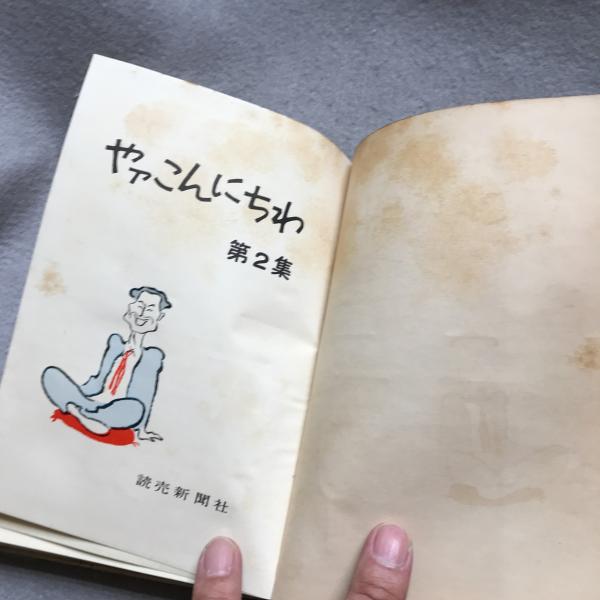 やァこんにちわ
第2集
読売新聞社